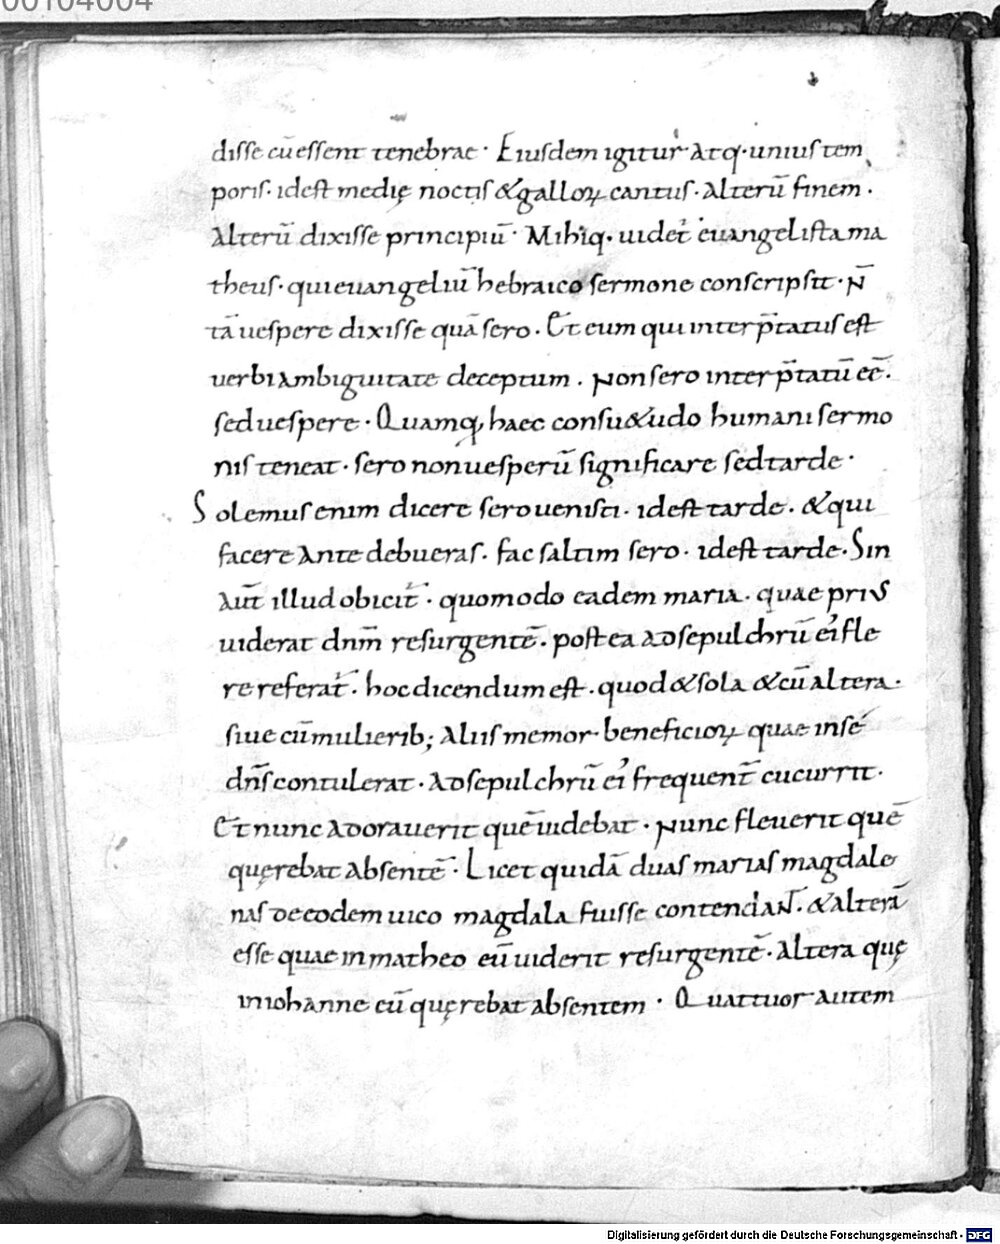 00104004
disse cū essent tenebrae · Eiusdem igitur atq· unius tem
poris · id est medię noctis & galloꝝ cantus · alterū finem ·
Alterū dixisse principiū · Mihiq· uidet̄ euangelista ma
theus · qui euangeliū hebraico sermone conscripsit · N̄
tā uespere dixisse quā sero · Et eum qui interp̄tatus est
uerbi ambiguitate deceptum . Non sero interp̄tatū eē .
sed uespere · Quamq, haec consu&udo humani sermo
nis teneat · sero non uesperū significare sed tarde ·
Solemus enim dicere sero uenisti · id est tarde . & qui
facere ante debueras . fac saltim sero · id est tarde · Sin
aut̄ illud obicit̄ · quomodo eadem maria . quae prius
uiderat dnm̄ resurgentē . postea ad sepulchrū ei' fle
re referat̄ . hoc dicendum est . quod & sola & cū altera ·
siue cū mulierib; aliis memor beneficioꝝ quae in se
dn̄s contulerat · ad sepulchrū ei' frequent̄ cucurrit ·
Et nunc adorauerit quē uidebat · Nunc fleuerit quē
quęrebat absentē · Licet quidā duas marias magdale
nas de eodem uico magdala fuisse contendant . & alterā
esse quae in matheo eū uiderit resurgentē · altera quę
in iohanne eū quęrebat absentem · Quattuor autem
Digitalisierung gefördert durch die Deutsche Forschungsgemeinschaft - DFG